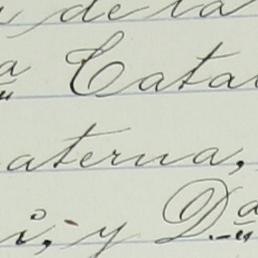 de la
a Cata
aterna,
i, y Da